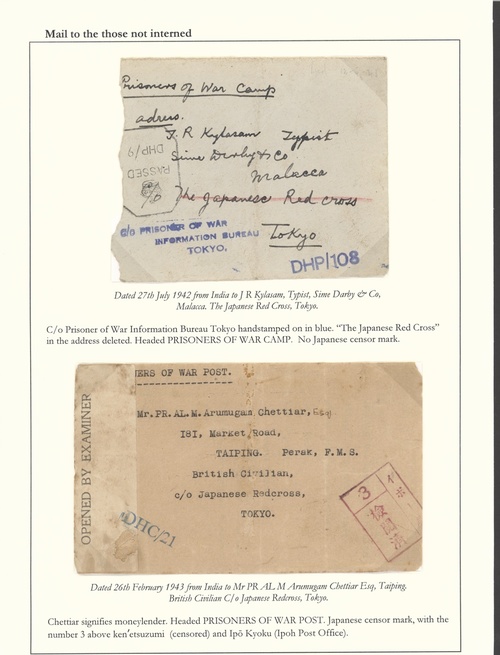 Mail to the those not interned
Prisoners of War Camp
adress.
J. R Kylasam Typist
Sime Derby & Co
Malacca
The Japanese Red cross
Tokyo
PASSED
DHP/9
C/o PRISONER OF WAR
INFORMATION BUREAU
TOKYO,
DHP/108
Dated 27th July 1942 from India to J R Kylasam, Typist, Sime Darby & Co,
Malacca. The Japanese Red Cross, Tokyo.
C/o Prisoner of War Information Bureau Tokyo handstamped on in blue. “The Japanese Red Cross”
in the address deleted. Headed PRISONERS OF WAR CAMP. No Japanese censor mark.
NERS OF WAR POST.
Mr.PR.AL.M.Arumugam Chettiar, Esq
181, Market Road,
TAIPING. Perak, F.M.S.
British Civilian,
c/o Japanese Redcross,
TOKYO.
OPENED BY EXAMINER
DHC/21
3
イポー
検閲済
Dated 26th February 1943 from India to Mr PR AL M Arumugam Chettiar Esq, Taiping.
British Civilian C/o Japanese Redcross, Tokyo.
Chettiar signifies moneylender. Headed PRISONERS OF WAR POST. Japanese censor mark, with the
number 3 above ken'etsuzumi (censored) and Ipō Kyoku (Ipoh Post Office).